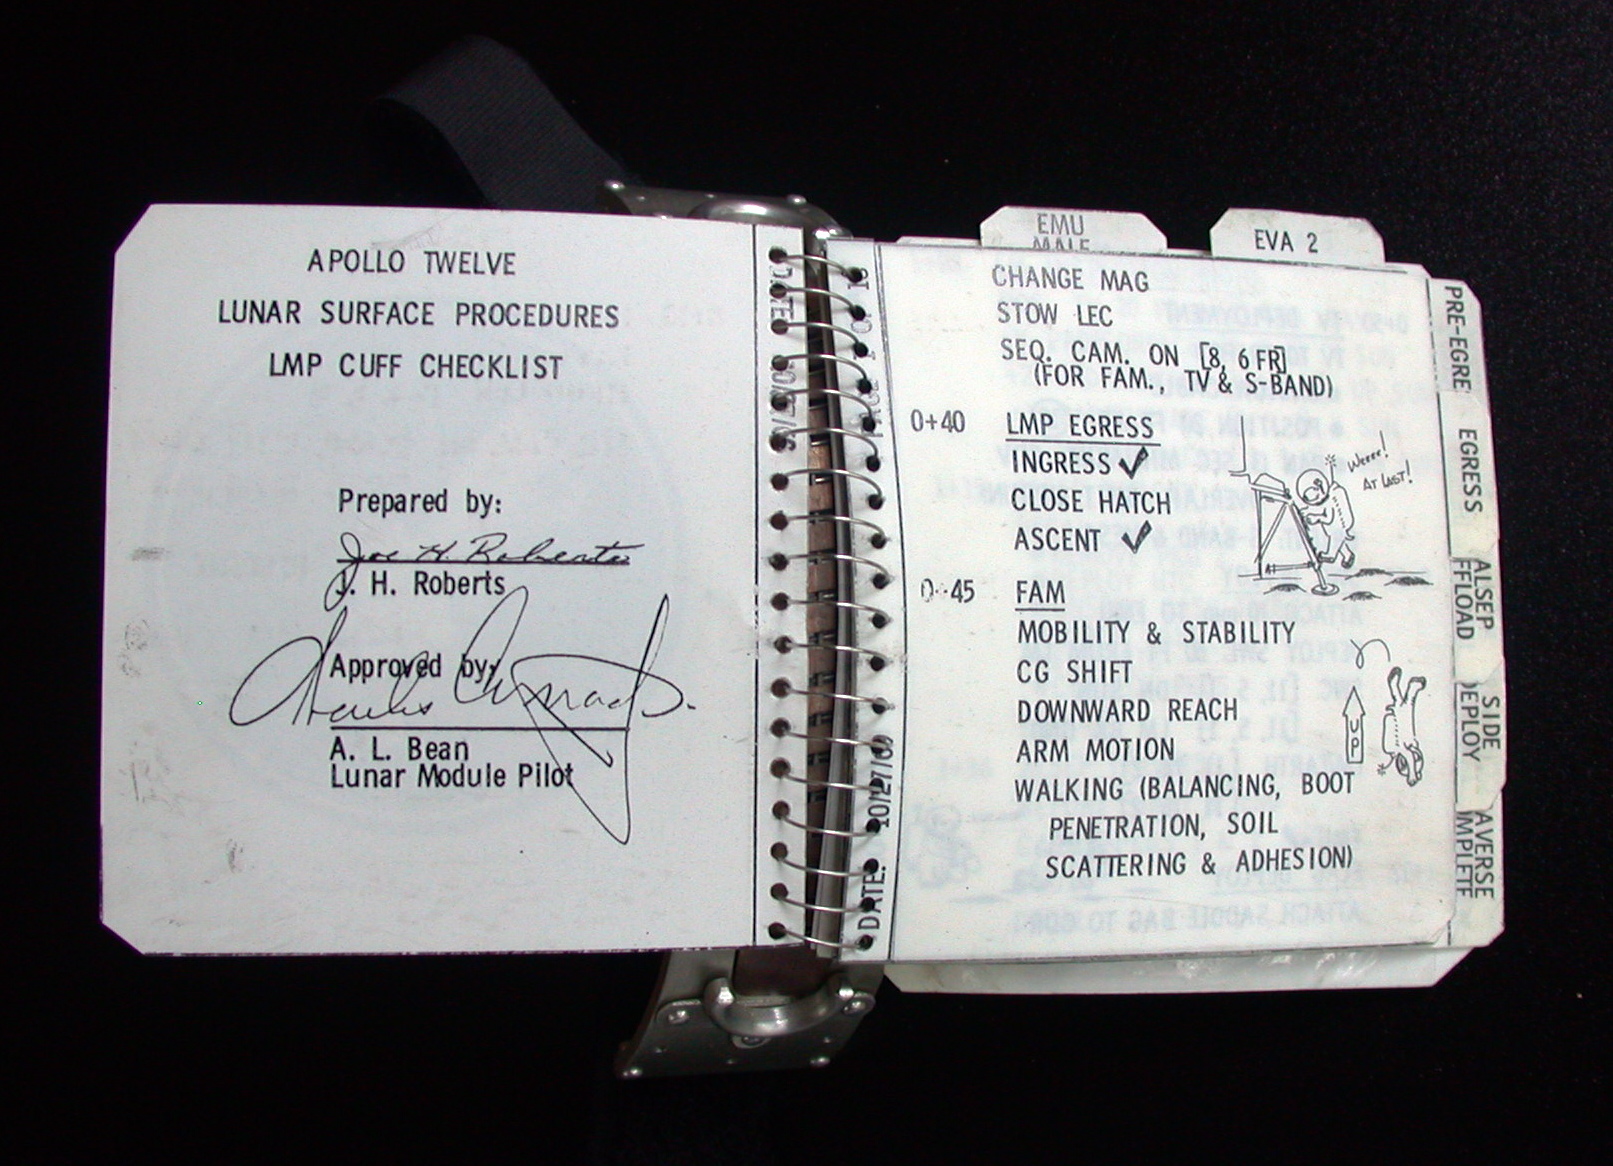 APOLLO TWELVE
LUNAR SURFACE PROCEDURES
LMP CUFF CHECKLIST
Prepared by:
Joe H. Roberts
J. H. Roberts
Approved by:
Charles Conrad Jr.
A. L. Bean
Lunar Module Pilot
DATE: 10/27/69
EMU
EVA 2
CHANGE MAG
STOW LEC
SEQ. CAM. ON [8, 6 FR]
(FOR FAM., TV & S-BAND)
0+40 LMP EGRESS
INGRESS ✓
CLOSE HATCH
ASCENT ✓
Weeee!
AT LAST!
0+45 FAM
MOBILITY & STABILITY
CG SHIFT
DOWNWARD REACH
ARM MOTION
WALKING (BALANCING, BOOT
PENETRATION, SOIL
SCATTERING & ADHESION)
UP
DATE: 10/27/69 PAGE 1 OF
PRE-EGRE
EGRESS
ALSEP
FFLOAD
SIDE
DEPLOY
AVERSE
IMPLETE